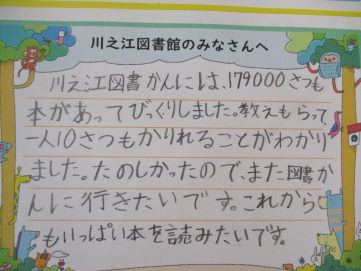 川之江図書館のみなさんへ
川之江図書かんには、179000さつも
本があってびっくりしました。教えもらって
一人10さつもかりれることがわかり
ました。たのしかったので、また図書か
んに行きたいです。これから
もいっぱい本を読みたいです。